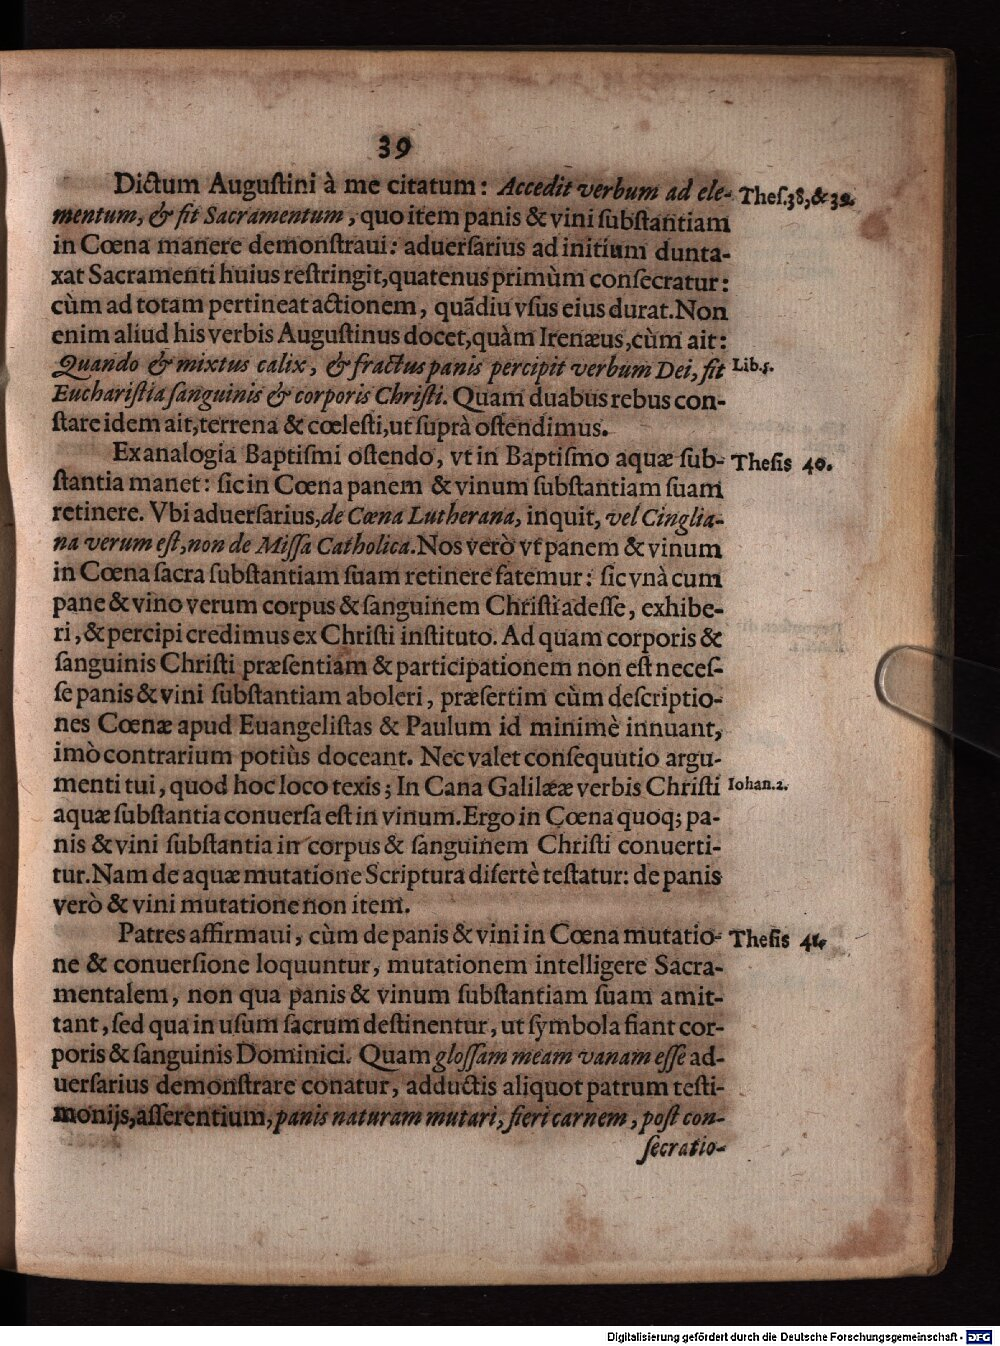 39
Dictum Augustini à me citatum: Accedit verbum ad ele- Thes.38,&39.
mentum, & fit Sacramentum, quo item panis & vini substantiam
in Cœna manere demonstraui: aduersarius ad initium dunta-
xat Sacramenti huius restringit, quatenus primùm consecratur:
cùm ad totam pertineat actionem, quãdiu vsus eius durat. Non
enim aliud his verbis Augustinus docet, quàm Irenæus, cùm ait:
Quando & mixtus calix, & fractus panis percipit verbum Dei, fit Lib.5.
Eucharistia sanguinis & corporis Christi. Quam duabus rebus con-
stare idem ait, terrena & cœlesti, ut suprà ostendimus.
Ex analogia Baptismi ostendo, vt in Baptismo aquæ sub- Thesis 40.
stantia manet: sic in Cœna panem & vinum substantiam suam
retinere. Vbi aduersarius, de Cœna Lutherana, inquit, vel Cinglia-
na verum est, non de Missa Catholica. Nos verò vt panem & vinum
in Cœna sacra substantiam suam retinere fatemur: sic vnà cum
pane & vino verum corpus & sanguinem Christi adesse, exhibe-
ri, & percipi credimus ex Christi instituto. Ad quam corporis &
sanguinis Christi præsentiam & participationem non est neces-
se panis & vini substantiam aboleri, præsertim cùm descriptio-
nes Cœnæ apud Euangelistas & Paulum id minimè innuant,
imò contrarium potiùs doceant. Nec valet consequutio argu-
menti tui, quod hoc loco texis; In Cana Galilææ verbis Christi Iohan.2.
aquæ substantia conuersa est in vinum. Ergo in Cœna quoq; pa-
nis & vini substantia in corpus & sanguinem Christi conuerti-
tur. Nam de aquæ mutatione Scriptura disertè testatur: de panis
verò & vini mutatione non item.
Patres affirmaui, cùm de panis & vini in Cœna mutatio- Thesis 41.
ne & conuersione loquuntur, mutationem intelligere Sacra-
mentalem, non qua panis & vinum substantiam suam amit-
tant, sed qua in usum sacrum destinentur, ut symbola fiant cor-
poris & sanguinis Dominici. Quam glossam meam vanam esse ad-
uersarius demonstrare conatur, adductis aliquot patrum testi-
monijs, asserentium, panis naturam mutari, fieri carnem, post con-
secratio-
Digitalisierung gefördert durch die Deutsche Forschungsgemeinschaft - DFG